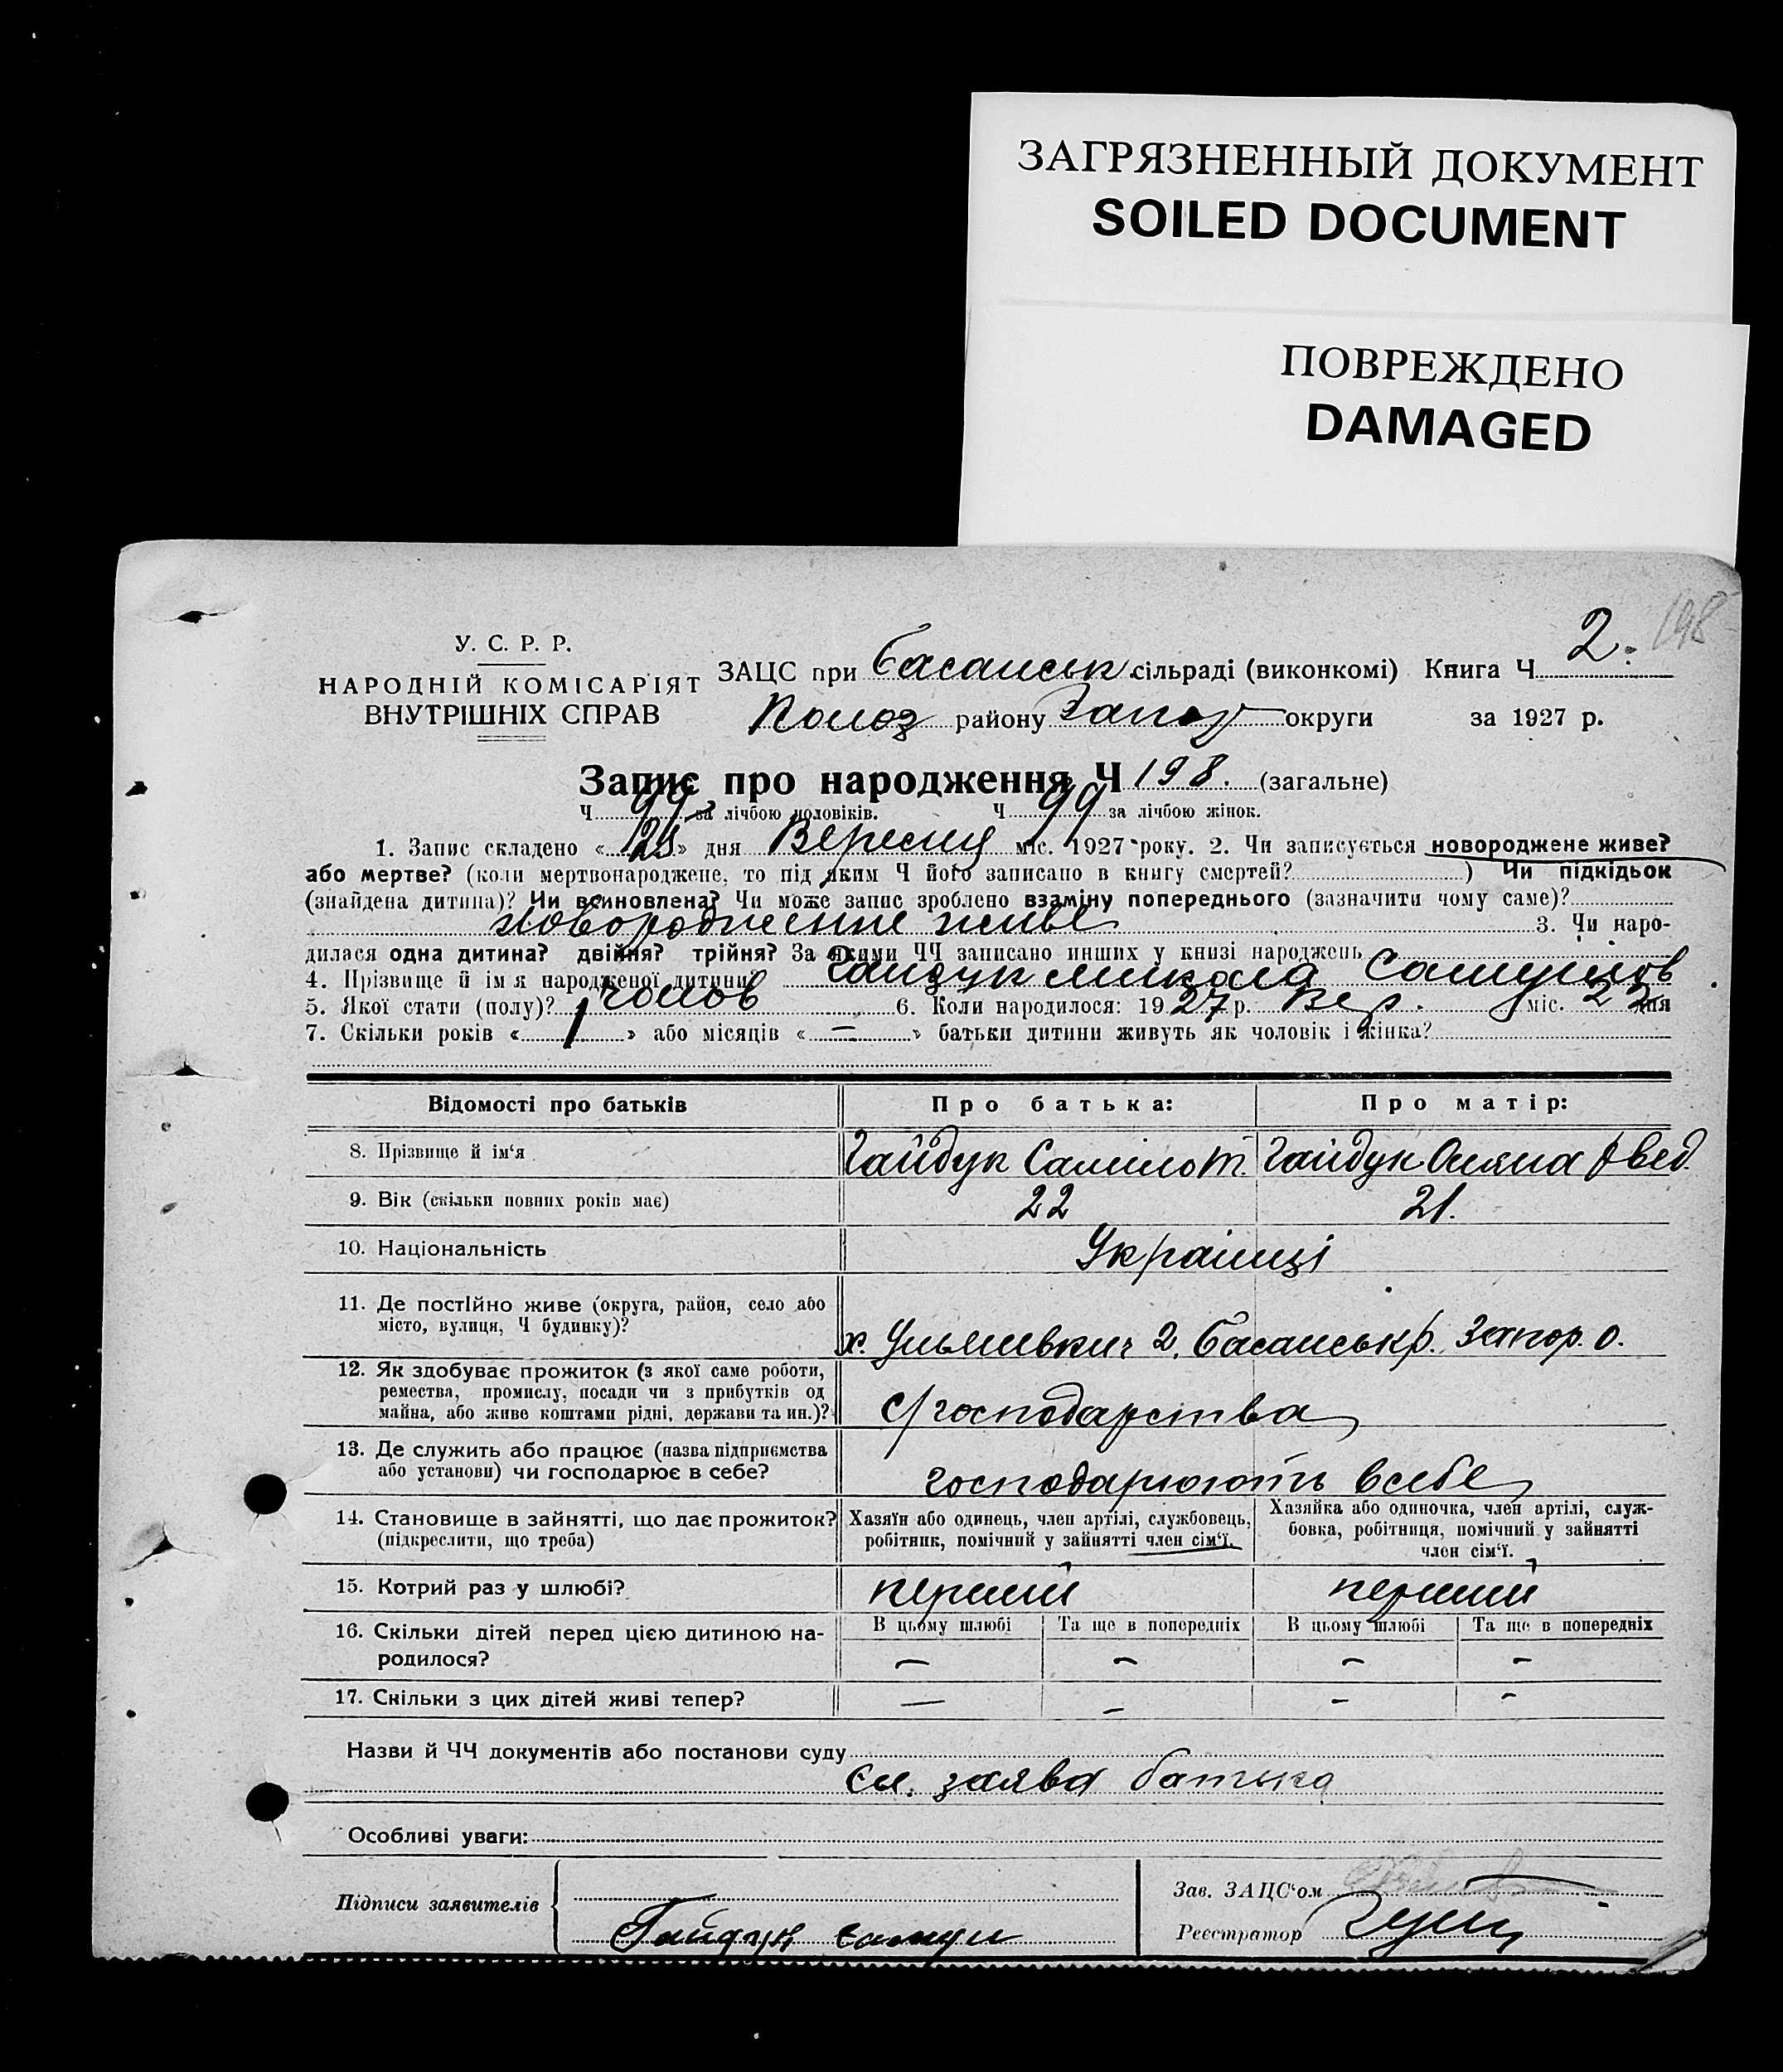 ЗАГРЯЗНЕННЫЙ ДОКУМЕНТ
SOILED DOCUMENT
ПОВРЕЖДЕНО
DAMAGED
198
У. С. Р. Р.
НАРОДНІЙ КОМІСАРІЯТ
ВНУТРІШНІХ СПРАВ
ЗАЦС при Басанськ сільраді (виконкомі) Книга Ч 2.
Полог району Запор округи за 1927 р.
Запис про народження Ч 198. (загальне)
Ч 99 за лічбою чоловіків. Ч 99 за лічбою жінок.
1. Запис складено « » дня Вересня міс. 1927 року. 2. Чи записується новороджене живе?
або мертве? (коли мертвонароджене, то під яким Ч його записано в книгу смертей? ) Чи підкідьок
(знайдена дитина)? Чи всиновлена? Чи може запис зроблено взаміну попереднього (зазначити чому саме)?
новороджение живе 3. Чи наро-
дилася одна дитина? двійня? трійня? За якими ЧЧ записано инших у книзі народжень
4. Прізвище й ім я народженої дитини? Гайдук Микола Самуилов
5. Якої стати (полу)? чолов 6. Коли народилося: 1927 р. Вер. міс. 22 дня
7. Скільки років « 1 » або місяців « — » батьки дитини живуть як чоловік і жінка?
Відомості про батьків Про батька: Про матір:
8. Прізвище й ім'я Гайдук Самило Т. Гайдук Оляна Авед.
9. Вік (скільки повних років має) 22 21.
10. Національність Українці
11. Де постійно живе (округа, район, село або
місто, вулиця, Ч будинку)?
х. 2. Басанськ р. Запор. о.
12. Як здобуває прожиток (з якої саме роботи,
ремества, промислу, посади чи з прибутків од
майна, або живе коштами рідні, держави та ин.)?
с/господарства
13. Де служить або працює (назва підприємства
або установи) чи господарює в себе?
господарюють в себе
14. Становище в зайнятті, що дає прожиток?
(підкреслити, що треба)
Хазяїн або одинець, член артілі, службовець,
робітник, помічний у зайнятті член сім'ї.
Хазяйка або одиночка, член артілі, служ-
бовка, робітниця, помічний у зайнятті
член сім'ї.
15. Котрий раз у шлюбі? перший перший
16. Скільки дітей перед цією дитиною на-
родилося?
В цьому шлюбі Та ще в попередніх В цьому шлюбі Та ще в попередніх
— — — —
17. Скільки з цих дітей живі тепер? — — — —
Назви й ЧЧ документів або постанови суду
заява батька
Особливі уваги:
Підписи заявителів
Гайдук Самуи
Зав. ЗАЦС'ом
Реєстратор